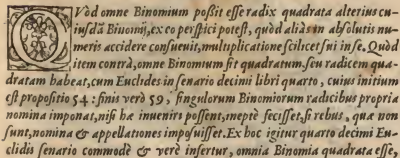 QVòd omne Binomium poßit esse radix quadrata alterius cu
iusdã Binomij, ex eo perspici potest, quòd aliàs in absolutis nu-
meris accidere consueuit, multiplicatione scilicet sui in se. Quòd
item contrà, omne Binomium sit quadratum, seu radicem qua-
dratam habeat, cum Euclides in senario decimi libri quarto, cuius initium
est propositio 54: finis verò 59, singulorum Binomiorum radicibus propria
nomina imponat, nisi hæ inueniri possent, ineptè fecisset, si rebus, quæ non
sunt, nomina & appellationes imposuisset. Ex hoc igitur quarto decimi Eu-
clidis senario commodè & verè infertur, omnia Binomia quadrata esse,